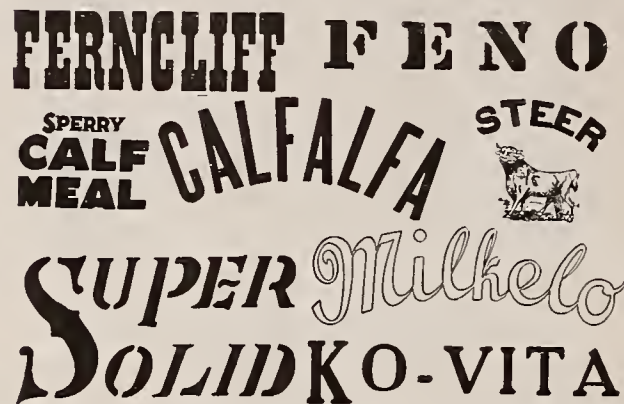 FERNCLIFF
FENO
SPERRY
CALF
MEAL
CALFALFA
STEER
SUPER
SOLID
Milkelo
KO-VITA